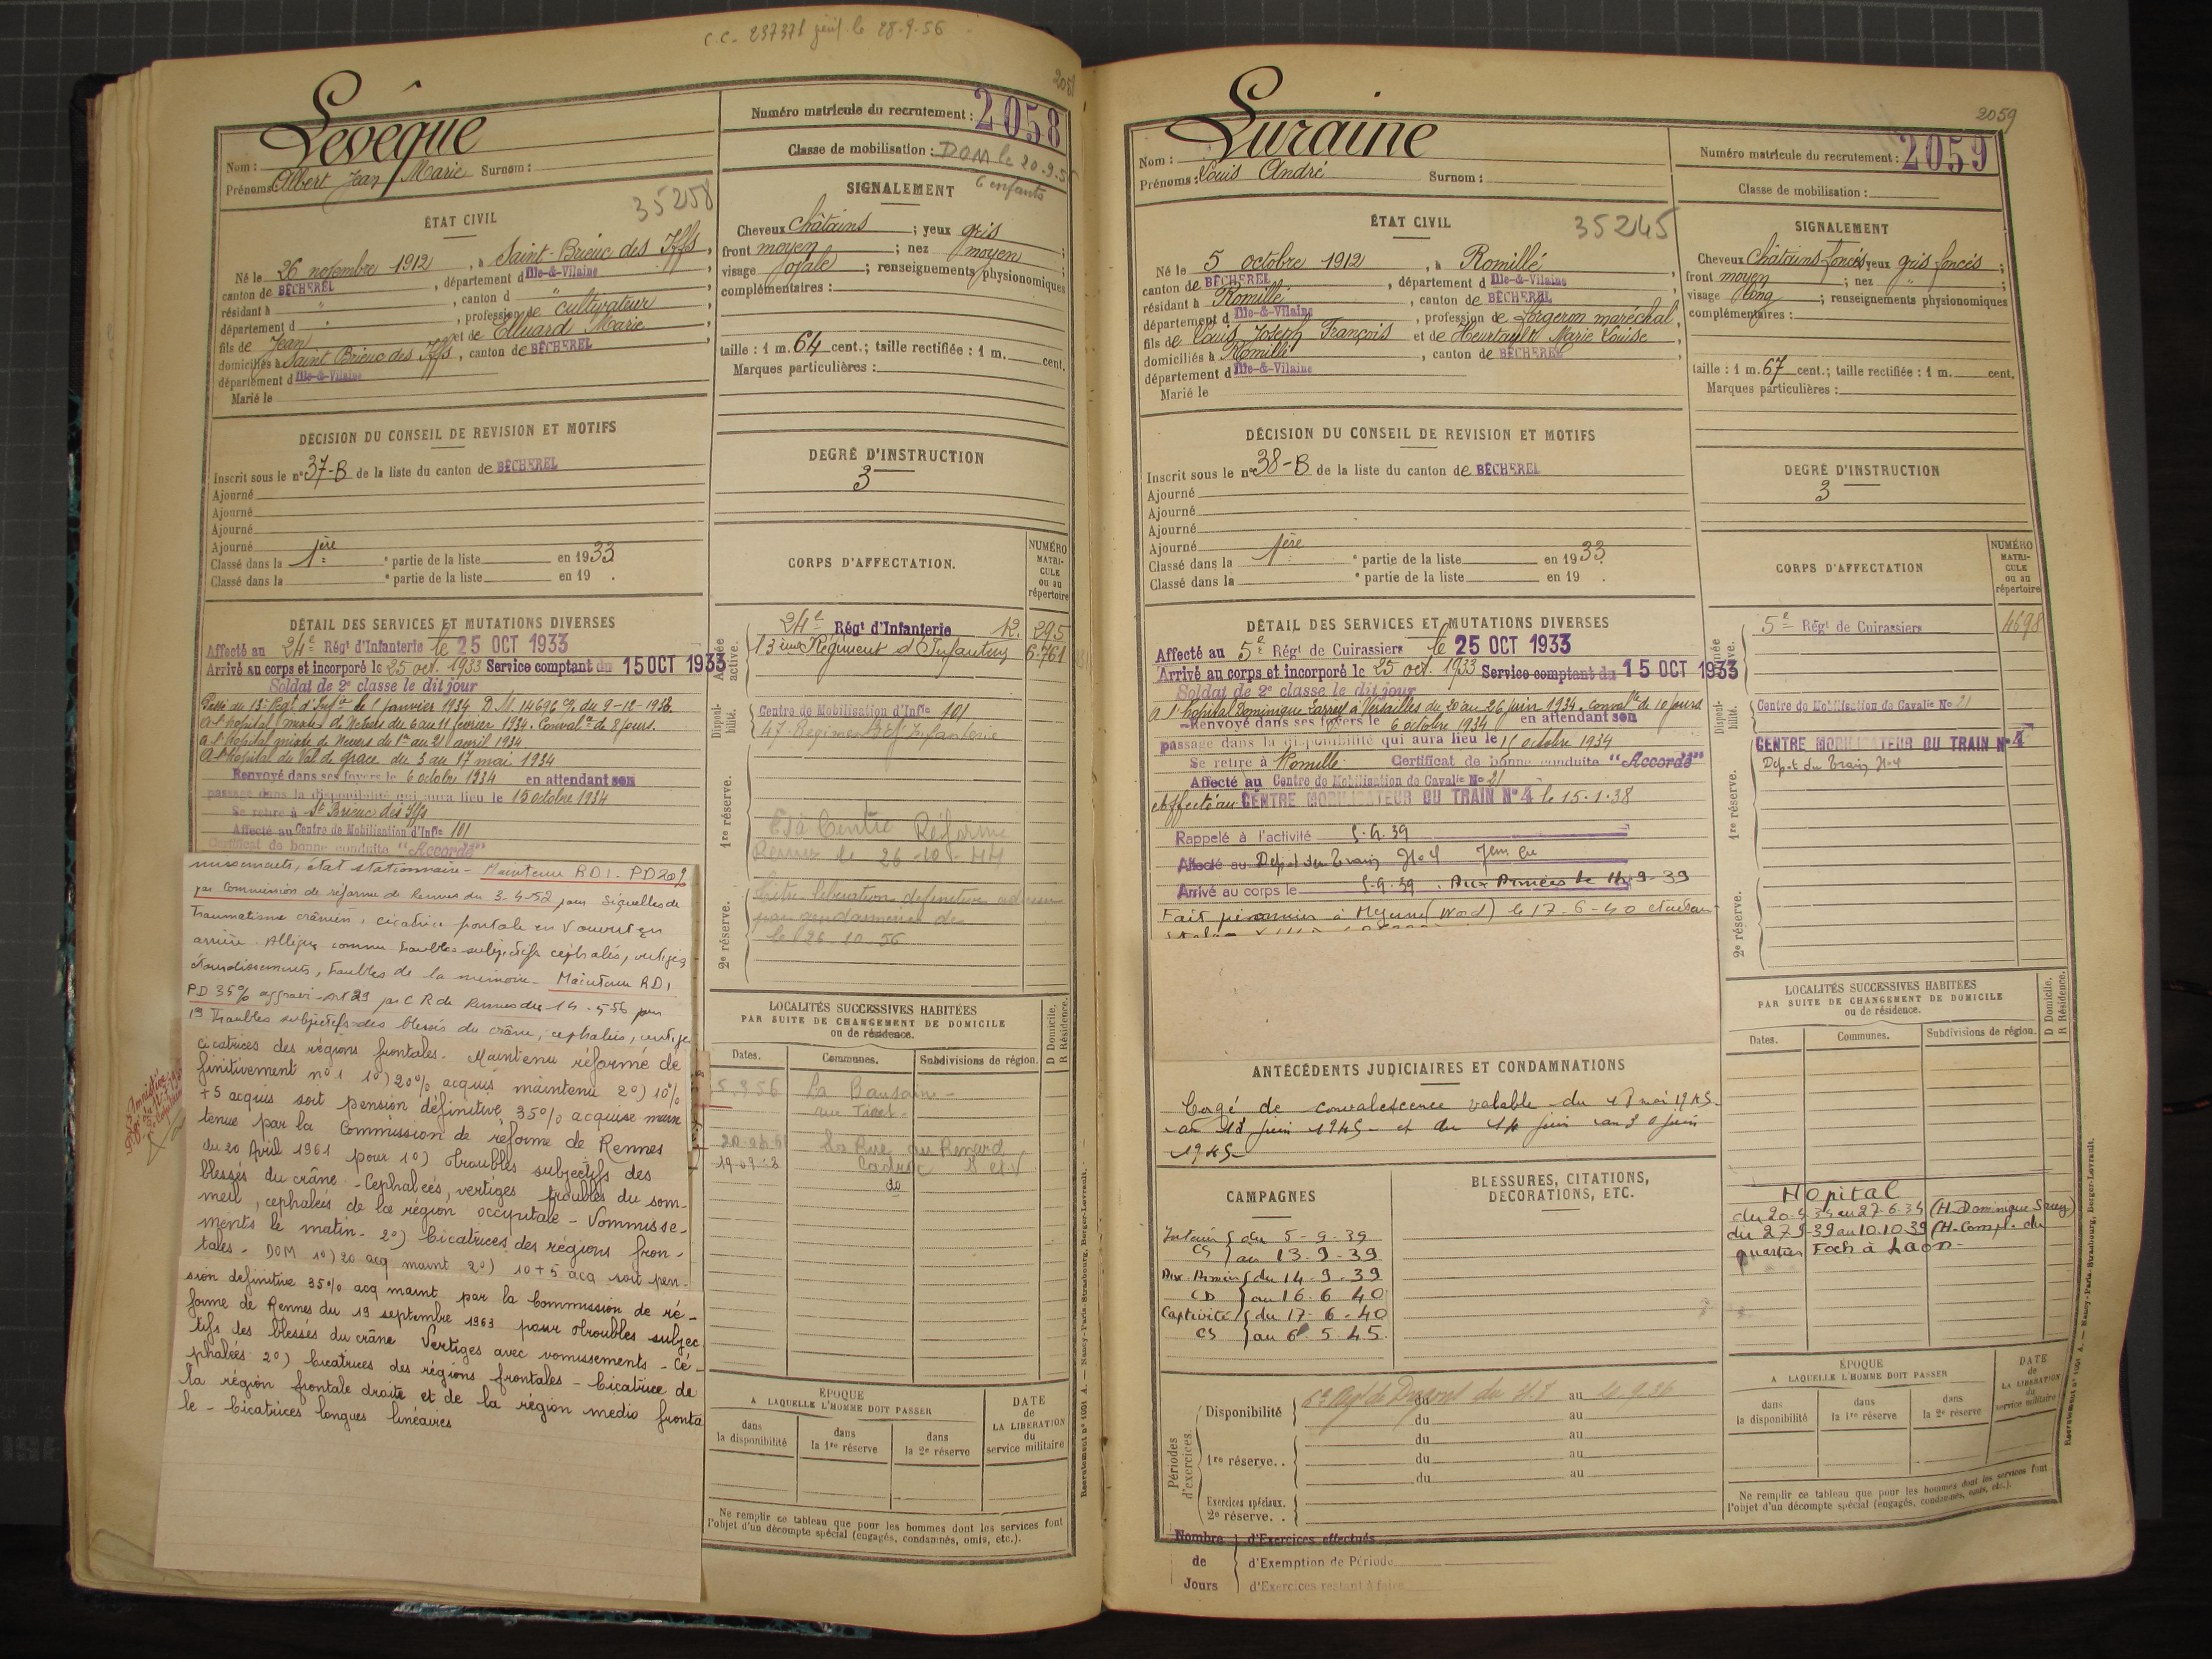 C.C. 237371 le 28.9.56
2058
Levêque
Nom :
Prénoms : Albert Jean Marie Surnom :
Numéro matricule du recrutement : 2058
Classe de mobilisation : DOM le 20.9.5
6 enfants
35258
ÉTAT CIVIL
Né le 26 novembre 1912, à Saint-Brieuc des Iffs,
canton de BÉCHEREL, département d Ille-&-Vilaine
résidant à ", canton d "
département d ", profession de cultivateur
fils de Jean et de Elluard Marie
domiciliés à Saint Brieuc des Iffs, canton de BÉCHEREL
département d Ille-&-Vilaine
Marié le
SIGNALEMENT
Cheveux châtains ; yeux gris ;
front moyen ; nez moyen ;
visage ovale ; renseignements physionomiques
complémentaires :
taille : 1 m. 64 cent.; taille rectifiée : 1 m. cent.
Marques particulières :
DÉCISION DU CONSEIL DE REVISION ET MOTIFS
Inscrit sous le n° 37-B de la liste du canton de BÉCHEREL
Ajourné
Ajourné
Ajourné
Ajourné
Classé dans la 1ère partie de la liste en 1933
Classé dans la e partie de la liste en 19 .
DEGRÉ D'INSTRUCTION
3
DÉTAIL DES SERVICES ET MUTATIONS DIVERSES
Affecté au 24e Régt d'Infanterie le 25 OCT 1933
Arrivé au corps et incorporé le 25 oct. 1933 Service comptant du 15 OCT 1933
Soldat de 2e classe le dit jour
Passé au 13e Régt d'Infie le 1 janvier 1934 D.M. 14696 du 9-12-1933.
A l'hôpital mixte de Nevers du 6 au 11 février 1934. Convalce de 8 jours.
A l'hôpital mixte de Nevers du 1er au 21 avril 1934
A l'hôpital du Val de grâce du 3 au 17 mai 1934
Renvoyé dans ses foyers le 6 octobre 1934 en attendant son
passage dans la disponibilité qui aura lieu le 15 octobre 1934
Se retire à St Brieuc des Iffs
Affecté au Centre de Mobilisation d'Infie 101
Certificat de bonne conduite "Accordé"
nussements, état stationnaire - Maintenu RD1 - PD 20%
par Commission de réforme de Rennes du 3-4-52 pour séquelles de
traumatisme crânien, cicatrice frontale en V ouvert en
arrière. Allègue comme troubles subjectifs céphalés, vertiges
étourdissements, troubles de la mémoire - Maintenu RD1
PD 35% par C R de Rennes du 14-5-56 pour
1° Troubles subjectifs des blessés du crâne, céphalées, vertige
cicatrices des régions frontales. Maintenu réformé dé
finitivement n° 1 1°) 20% acquis maintenu 2°) 10%
+5 acquis soit pension définitive 35% acquise main
tenue par la Commission de réforme de Rennes
du 20 Avril 1961 pour 1°) Troubles subjectifs des
blessés du crâne - Cephaleés, vertiges troubles du som-
meil, cephaleés de la région occipitale - Vommisse-
ments le matin - 2°) Cicatrices des régions fron-
tales - DOM 1°) 20 acq maint 2°) 10+5 acq soit pen-
sion definitive 35% acq maint par la Commission de ré-
forme de Rennes du 19 septembre 1963 pour troubles subjec
tifs des blessés du crâne Vertiges avec vomissements - Cé-
phaleés 2°) Cicatrices des régions frontales - Cicatrice de
la région frontale droite et de la région medio fronta
le - Cicatrices longues linéaires
CORPS D'AFFECTATION.
NUMÉRO MATRI-CULE ou au répertoire
Armée active.
24e Régt d'Infanterie 12. 295
13ème Régiment d'Infanterie 6.761
Disponi-bilité.
Centre de Mobilisation d'Infie 101
47 Régiment d'Infanterie
1re réserve.
Centre Réforme
Rennes le 26-10-44
2e réserve.
libération définitive
par gendarmerie de
le 26-10-56
LOCALITÉS SUCCESSIVES HABITÉES
PAR SUITE DE CHANGEMENT DE DOMICILE
ou de résidence.
Dates. Communes. Subdivisions de région. D Domicile. R Résidence.
5.3.56 La Baussaine
La Rue du Renard
ÉPOQUE
A LAQUELLE L'HOMME DOIT PASSER
dans la disponibilité
dans la 1re réserve
dans la 2e réserve
DATE de LA LIBÉRATION du service militaire
Ne remplir ce tableau que pour les hommes dont les services font
l'objet d'un décompte spécial (engagés, condamnés, omis, etc.).
Recrutement n° 1001 A. — Nancy-Paris-Strasbourg, Berger-Levrault.
2059
Luraine
Nom :
Prénoms : Louis André Surnom :
Numéro matricule du recrutement : 2059
Classe de mobilisation :
ÉTAT CIVIL
35245
Né le 5 octobre 1912, à Romillé,
canton de BÉCHEREL, département d Ille-&-Vilaine
résidant à Romillé, canton de BÉCHEREL
département d Ille-&-Vilaine, profession de forgeron maréchal,
fils de Louis Joseph François et de Heurtault Marie Louise,
domiciliés à Romillé, canton de BÉCHEREL
département d Ille-&-Vilaine
Marié le
SIGNALEMENT
Cheveux châtains foncés yeux gris foncés ;
front moyen ; nez " ;
visage long ; renseignements physionomiques
complémentaires :
taille : 1 m. 67 cent.; taille rectifiée : 1 m. cent.
Marques particulières :
DÉCISION DU CONSEIL DE REVISION ET MOTIFS
Inscrit sous le n° 38-B de la liste du canton de BÉCHEREL
Ajourné
Ajourné
Ajourné
Ajourné
Classé dans la 1ère partie de la liste en 1933.
Classé dans la e partie de la liste en 19 .
DEGRÉ D'INSTRUCTION
3
DÉTAIL DES SERVICES ET MUTATIONS DIVERSES
Affecté au 5e Régt de Cuirassiers le 25 OCT 1933
Arrivé au corps et incorporé le 25 oct. 1933 Service comptant du 15 OCT 1933
Soldat de 2e classe le dit jour
A l'hôpital Dominique Larrey à Versailles du 20 au 26 juin 1934. convalce de 10 jours
Renvoyé dans ses foyers le 6 octobre 1934 en attendant son
passage dans la disponibilité qui aura lieu le 15 octobre 1934
Se retire à Romillé Certificat de bonne conduite "Accordé"
Affecté au Centre de Mobilisation de Cavalie No 21
Affecté au CENTRE MOBILISATEUR DU TRAIN N° 4 le 15.1.38
Rappelé à l'activité 5.9.39
Affecté au Dépôt du Train No 4
Arrivé au corps le 5.9.39. Aux Armées le 14-9-39
Fait prisonnier à (Nord) le 17-6-40
CORPS D'AFFECTATION
NUMÉRO MATRI-CULE ou au répertoire
Armée active.
5e Régt de Cuirassiers 4698
Disponi-bilité.
Centre de Mobilisation de Cavalie No 21
1re réserve.
CENTRE MOBILISATEUR DU TRAIN N° 4
Dépôt du Train No 4
2e réserve.
ANTÉCÉDENTS JUDICIAIRES ET CONDAMNATIONS
Congé de convalescence valable du 18 mai 1945
au 13 juin 1945 et du 14 juin au 30 juin
1945
LOCALITÉS SUCCESSIVES HABITÉES
PAR SUITE DE CHANGEMENT DE DOMICILE
ou de résidence.
Dates. Communes. Subdivisions de région. D Domicile. R Résidence.
Hôpital
du 20-6-34 au 27-6-34 (H. Dominique Larrey)
du 27 9-39 au 10.10.39 (H. Compl. du
quartier Foch à Laon -
CAMPAGNES
Intérieur du 5-9-39
CS au 13.9.39
Aux Armées du 14-9-39
CD au 16.6.40
Captivité du 17-6-40
CS au 6.5.45.
BLESSURES, CITATIONS,
DÉCORATIONS, ETC.
Périodes d'exercices
Disponibilité du au
du au
1re réserve. . du au
du au
Exercices spéciaux.
2e réserve. .
Nombre de Jours
d'Exercices effectués
d'Exemption de Période
d'Exercices restant à faire
ÉPOQUE
A LAQUELLE L'HOMME DOIT PASSER
dans la disponibilité
dans la 1re réserve
dans la 2e réserve
DATE de LA LIBÉRATION du service militaire
Ne remplir ce tableau que pour les hommes dont les services font
l'objet d'un décompte spécial (engagés, condamnés, omis, etc.).
Recrutement n° 1001 A. — Nancy-Paris-Strasbourg, Berger-Levrault.